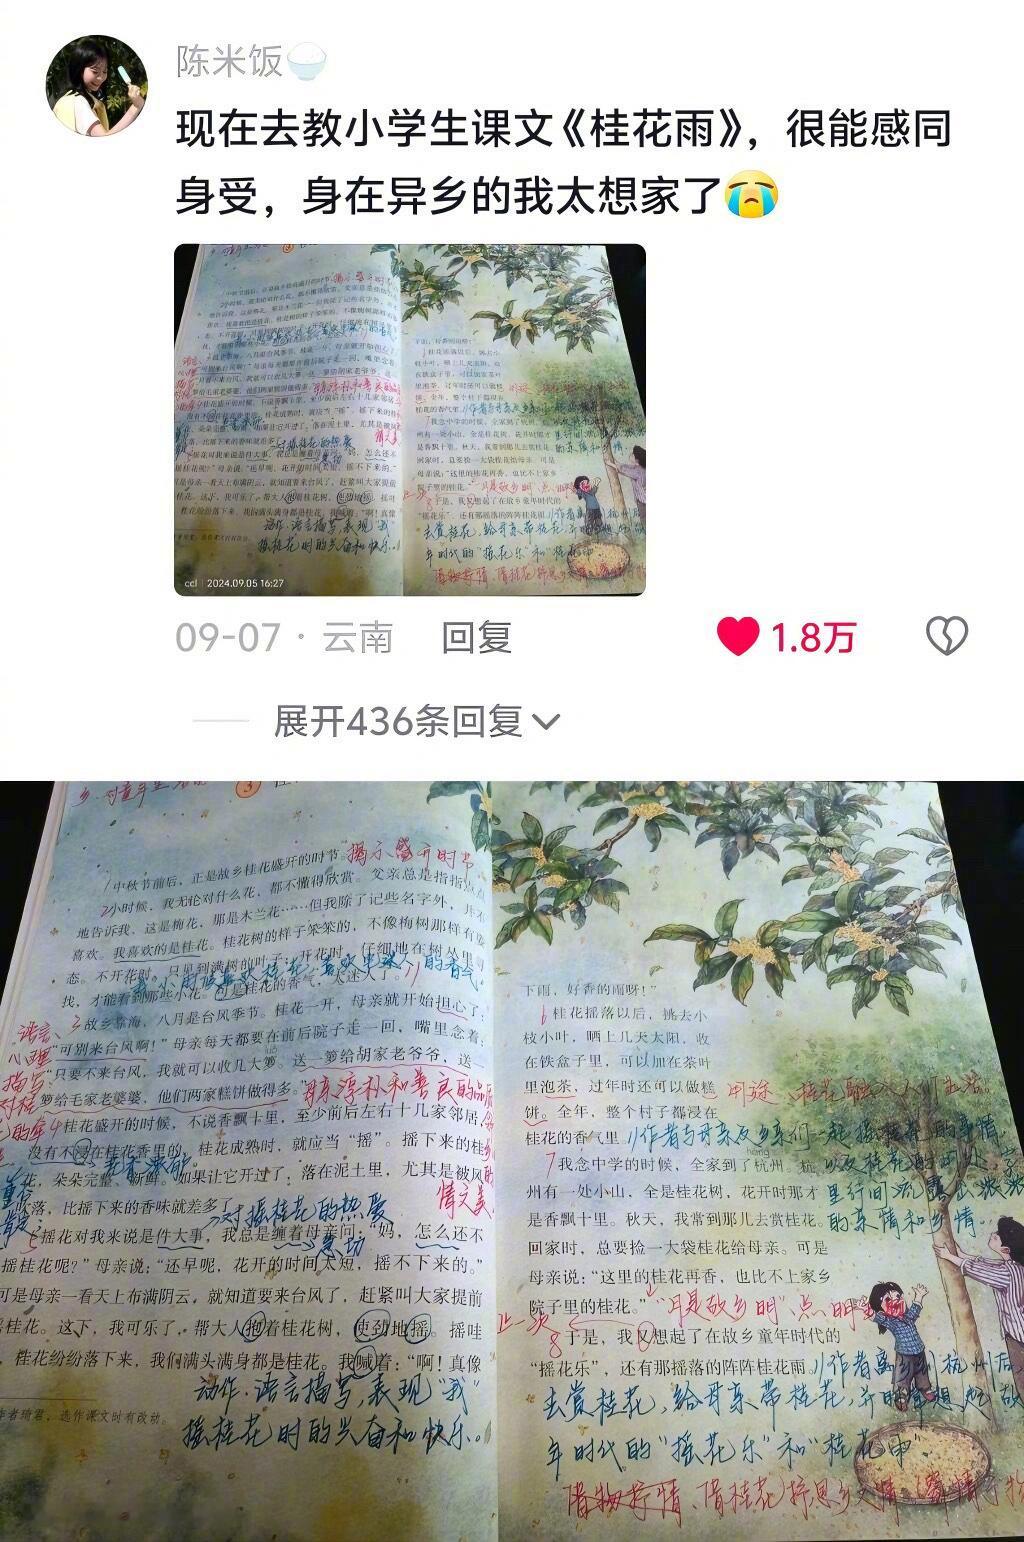 陈米饭🍚
现在去教小学生课文《桂花雨》，很能感同
身受，身在异乡的我太想家了😭
ccl | 2024.09.05 16:27
09-07 · 云南 回复
1.8万
展开436条回复
揭示盛开时节
1中秋节前后，正是故乡桂花盛开的时节。
2小时候，我无论对什么花，都不懂得欣赏。父亲总是指指点点
地告诉我，这是梅花，那是木兰花……但我除了记些名字外，并不
喜欢。我喜欢的是桂花。桂花树的样子笨笨的，不像梅树那样有姿
态。不开花时，只见到满树的叶子；开花时，仔细地在树丛里寻
找，才能看到那些小花。可是桂花的香气，太迷人了。
3故乡靠海，八月是台风季节。桂花一开，母亲就开始担心了：
“可别来台风啊！”母亲每天都要在前后院子走一回，嘴里念着，
“只要不来台风，我就可以收几大箩。送一箩给胡家老爷爷，送一
箩给毛家老婆婆，他们两家糕饼做得多。”
语言、
心理
描写
母亲淳朴和善良的品质
4桂花盛开的时候，不说香飘十里，至少前后左右十几家邻居，
没有不浸在桂花香里的。桂花成熟时，就应当“摇”。摇下来的桂
花，朵朵完整、新鲜。如果让它开过了，落在泥土里，尤其是被风
吹落，比摇下来的香味就差多了。
香气浓郁
对摇桂花的热爱
5摇花对我来说是件大事，我总是缠着母亲问：“妈，怎么还不
摇桂花呢？”母亲说：“还早呢，花开的时间太短，摇不下来的。”
可是母亲一看天上布满阴云，就知道要来台风了，赶紧叫大家提前
摇桂花。这下，我可乐了，帮大人抱着桂花树，使劲地摇。摇哇
，桂花纷纷落下来，我们满头满身都是桂花。我喊着：“啊！真像
急切
动作、语言描写，表现“我”
摇桂花时的兴奋和快乐。
作者琦君，选作课文时有改动。
下雨，好香的雨呀！”
6桂花摇落以后，挑去小
枝小叶，晒上几天太阳，收
在铁盒子里，可以加在茶叶
里泡茶，过年时还可以做糕
饼。全年，整个村子都浸在
桂花的香气里。
7我念中学的时候，全家到了杭州。杭
州有一处小山，全是桂花树，花开时那才
是香飘十里。秋天，我常到那儿去赏桂花。
回家时，总要捡一大袋桂花给母亲。可是
母亲说：“这里的桂花再香，也比不上家乡
院子里的桂花。”
里行间流露出浓浓
的亲情和乡情。
“月是故乡明”点明
8于是，我又想起了在故乡童年时代的
“摇花乐”，还有那摇落的阵阵桂花雨。
作者离乡到杭州后
去赏桂花，给母亲带桂花，并时常想起故
年时代的“摇花乐”和“桂花雨”。
借物抒情、借桂花抒思乡之情